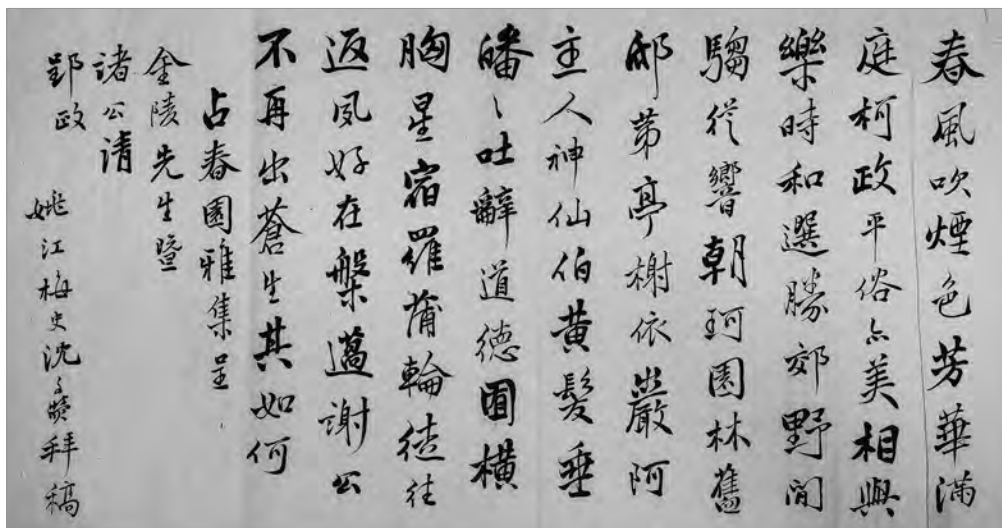 春風吹煙色芳華滿
庭柯政平俗亦美相與
樂時和選勝郊野間
騶從響朝珂園林舊
邸第亭榭依巖阿
主人神仙伯黃髮垂
皤〻吐辭道德圃橫
胸星宿羅蒲輪徒往
返夙好在槃薖謝公
不再出蒼生其如何
占春園雅集呈
金陵先生暨
諸公請
郢政
姚江梅史沈文熒拜稿